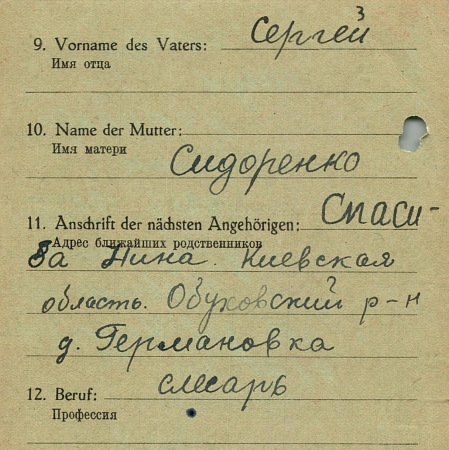 9. Vorname des Vaters: Сергей 3
Имя отца
10. Name der Mutter:
Имя матери
Сидоренко
11. Anschrift der nächsten Angehörigen: Спаси-
Адрес ближайших родственников
ба Нина. Киевская
область. Обуховский р-н
д. Германовка
12. Beruf: слесарь
Профессия